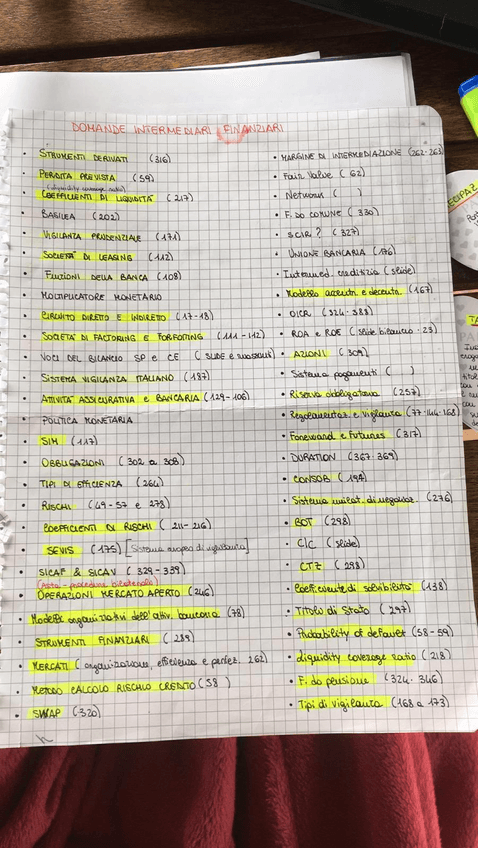 DOMANDE INTERMEDIARI FINANZIARI
• STRUMENTI DERIVATI (316)
• PERDITA PREVISTA (59)
(liquidity coverage ratio)
• COEFFICIENTI DI LIQUIDITÀ (217)
• BASILEA (202)
• VIGILANZA PRUDENZIALE (171)
• SOCIETÀ DI LEASING (112)
• FUNZIONI DELLA BANCA (108)
• MOLTIPLICATORE MONETARIO
• CIRCUITO DIRETTO E INDIRETTO (17-18)
• SOCIETÀ DI FACTORING E FORFAITING (111-112)
• VOCI DEL BILANCIO SP e CE (SLIDE e riassunti)
• SISTEMA VIGILANZA ITALIANO (187)
• ATTIVITÀ ASSICURATIVA E BANCARIA (129-106)
• POLITICA MONETARIA
• SIM (117)
• OBBLIGAZIONI (302 a 308)
• TIPI DI EFFICIENZA (264)
• RISCHI (49-57 e 278)
• COEFFICIENTI DI RISCHI (211-216)
• SEVIS (175) [Sistema europeo di vigilanza]
• SICAF & SICAV (329-339)
(Asta - procedura bilaterale)
• OPERAZIONI MERCATO APERTO (246)
• Modelli organizzativi dell'attiv. bancaria (78)
• STRUMENTI FINANZIARI (289)
• MERCATI (organizzazione, efficienza e perfez. 262)
• METODO CALCOLO RISCHIO CREDITO (58)
• SWAP (320)
• MARGINE DI INTERMEDIAZIONE (262-263)
• Fair Value (62)
• Network ( )
• F. DO COMUNE (330)
• SGR? (327)
• UNIONE BANCARIA (176)
• Intermed. creditizia (slide)
• Modello accentr. e decentr. (167)
• OICR (324-388)
• ROA e ROE (slide bilancio - 23)
• AZIONI (309)
• Sistema pagamenti ( )
• Riserva obbligatoria (257)
• Regolamentaz. e Vigilanza (77-144-168)
• Foreward e Futures (317)
• DURATION (367-369)
• CONSOB (194)
• Sistema multilat. di negoziaz. (276)
• BOT (298)
• C/C (slide)
• CTZ (298)
• Coefficiente di solvibilità (138)
• Titoli di Stato (297)
• Probability of default (58-59)
• liquidity coverage ratio (218)
• F. do pensione (324-346)
• Tipi di vigilanza (168 a 173)